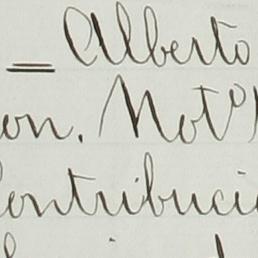 = Alberto
on. Not⁰
ontribuci